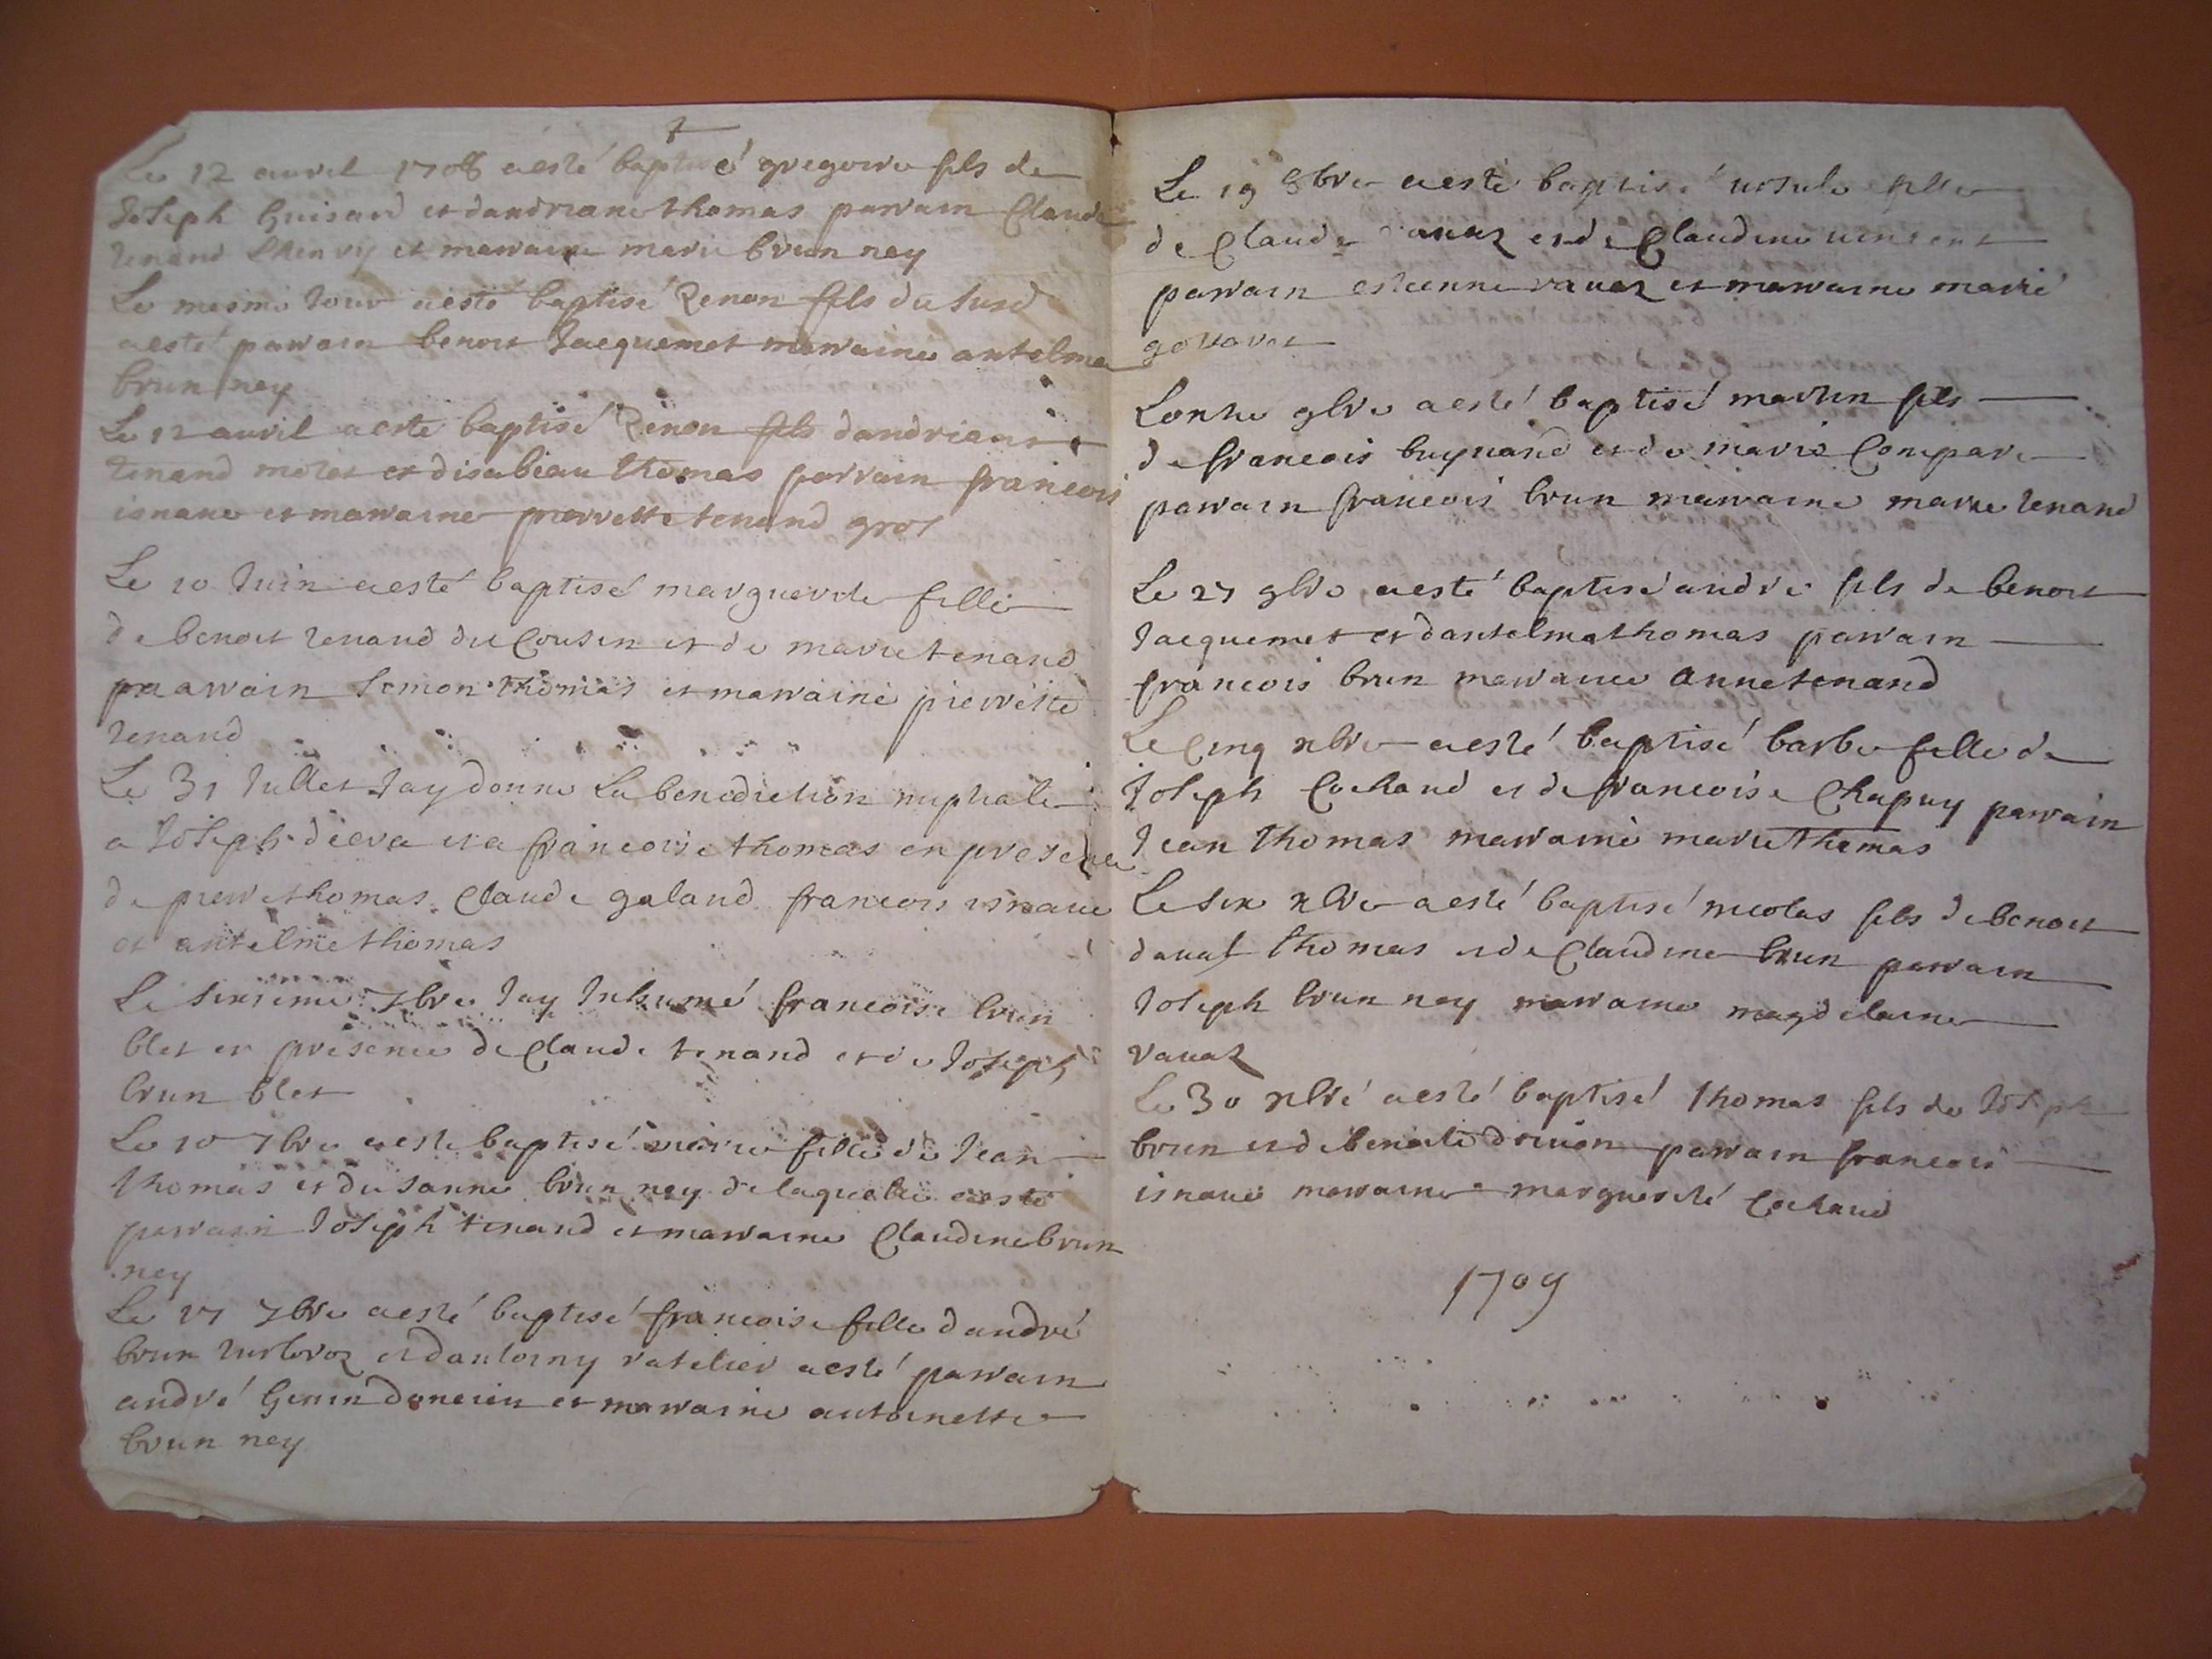 Le 12 auvril 1708 a esté baptisé gregoire fils de
Joseph Guisard et dandriane thomas parrain Claude
tenand Lhenry et marraine marie brun ney
Le mesme Jour a esté baptisé Zenon fils du susd
a esté parrain benoit Jacquemet marraine antelma
brun ney
Le 12 auvril a esté baptisé Zenon fils dandrien
tenand molet et disabeau thomas parrain francois
isnaue et marraine pierrette tenand gros
Le 10 Juin a esté baptisé marguerite fille
de benoit tenand du Cousin et de marie tenand
praarrain Simon thomas et marraine pierrette
tenand
Le 31 Jullet Jay donne La benediction nuptiale
a Joseph et a francoise thomas en presence
de pierre thomas Claude galand francois isnaue
et antelme thomas
Le sixsieme 7bre Jay Inhumé francoise brun
blet en presence de Claude tenand et de Joseph
brun blet
Le 10 7bre a este baptisé marie fille de Jean
thomas et du sanne brun ney de laquelle a esté
parrain Joseph tenand et marraine Claudine brun
ney
Le 17 7bre a esté baptisé francoise fille dandré
brun et dantoiny ratelier a esté parrain
andré Genin et marraine antoinette
brun ney
Le 19 8bre a esté baptisé ursule fille
de Claude et de Claudine uincent
parrain estienne rauaz et marraine marie
Lonze 9bre a esté baptisé martin fils
de francois buynand et de marie Compare
parrain francois brun marraine marie tenand
Le 27 9bre a esté baptisé andre fils de benoit
Jacquemet et dantelma thomas parrain
francois brun marraine anne tenand
Le Cinq xbre a esté baptisé barbe fille de
Joseph Cochand et de francoise Chapuy parrain
Jean thomas marraine marie thomas
Le six xbre a esté baptisé nicolas fils de benoit
thomas et de Claudine brun parrain
Joseph brun ney marraine magdelaine
rauaz
Le 30 xbre a esté baptisé thomas fils de Joseph
brun et de benoite parrain francois
isnaue marraine marguerite Cochand
1709